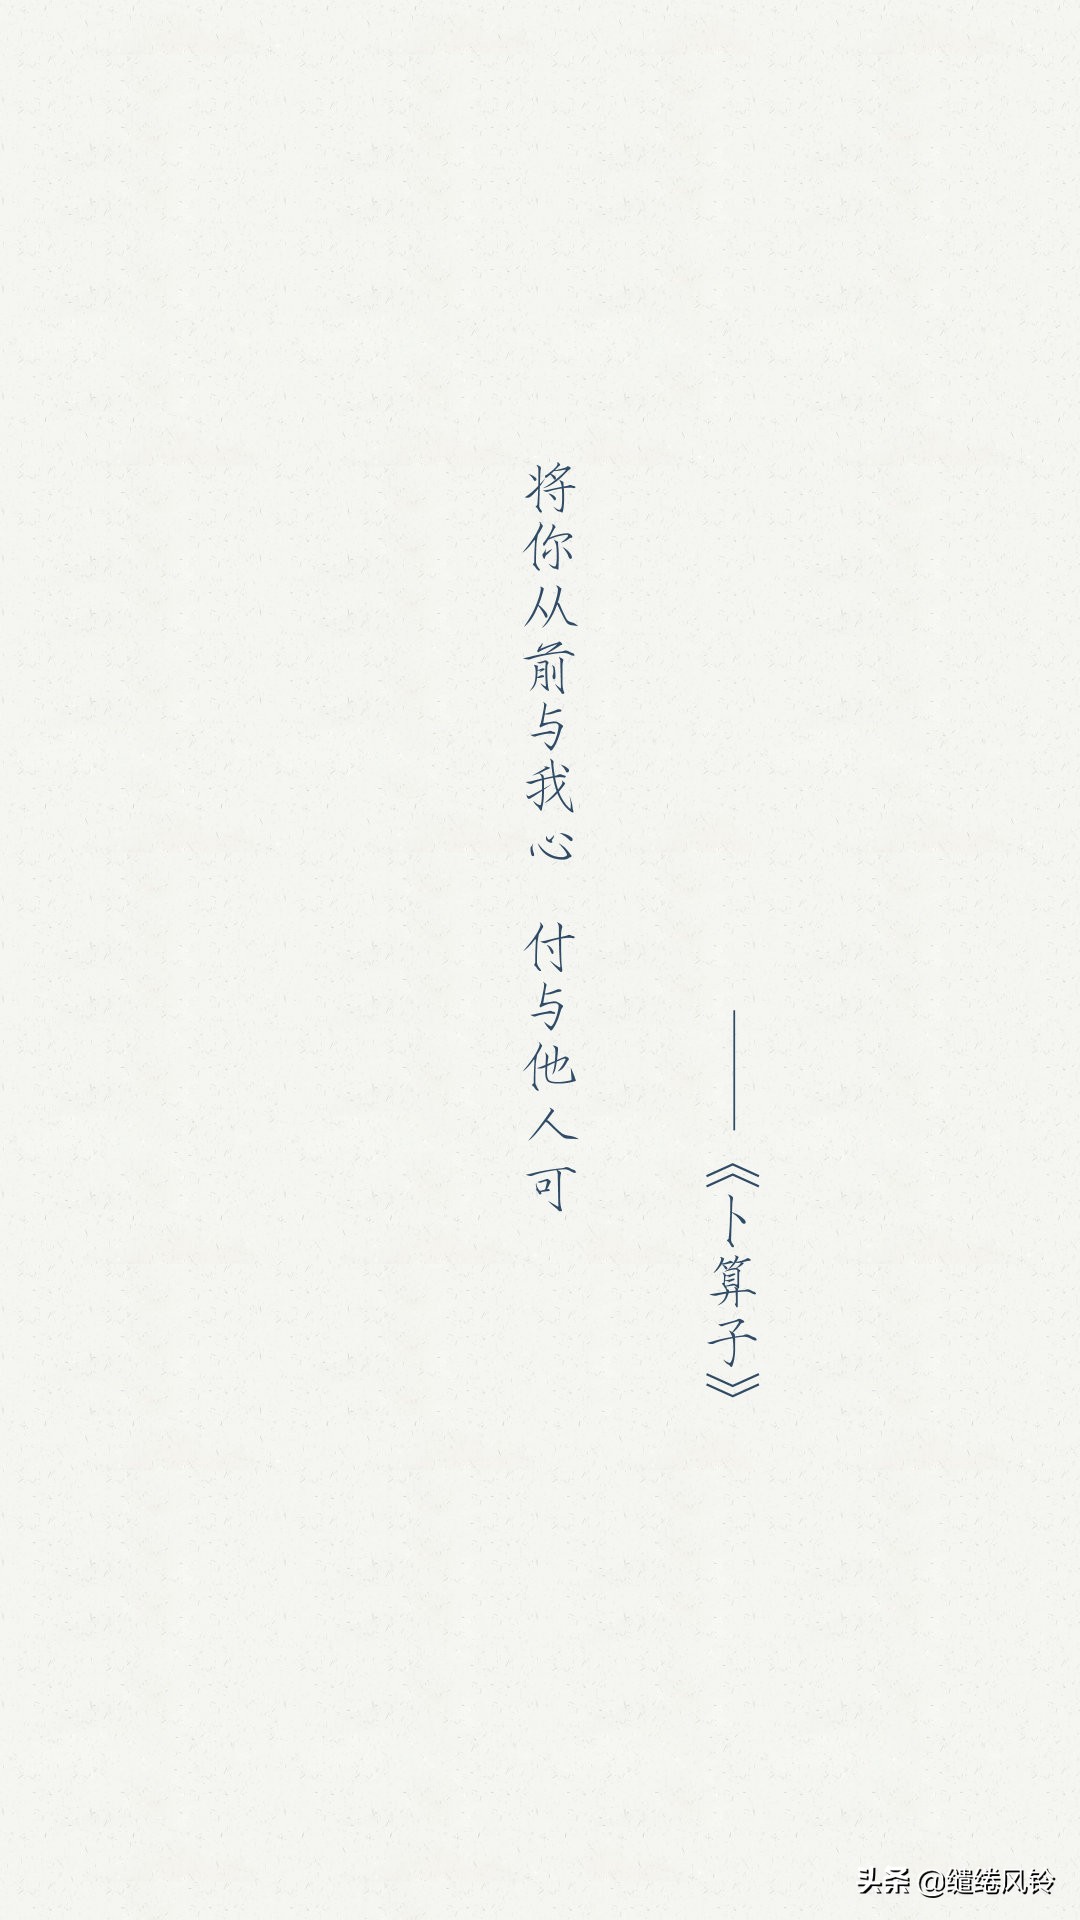 将你从前与我心 付与他人可
——《卜算子》
头条 @缱绻风铃